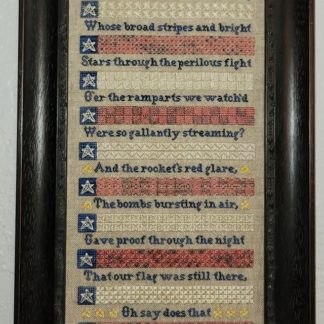 Whose broad stripes and bright
Stars through the perilous fight
O'er the ramparts we watch'd
Were so gallantly streaming?
And the rocket's red glare,
The bombs bursting in air,
Gave proof through the night
That our flag was still there,
Oh say does that